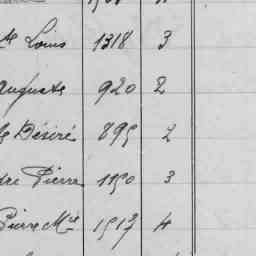 Louis 1318 3
Auguste 920 2
Désiré 895 2
Pierre 1150 3
Pierre Mie 1517 4